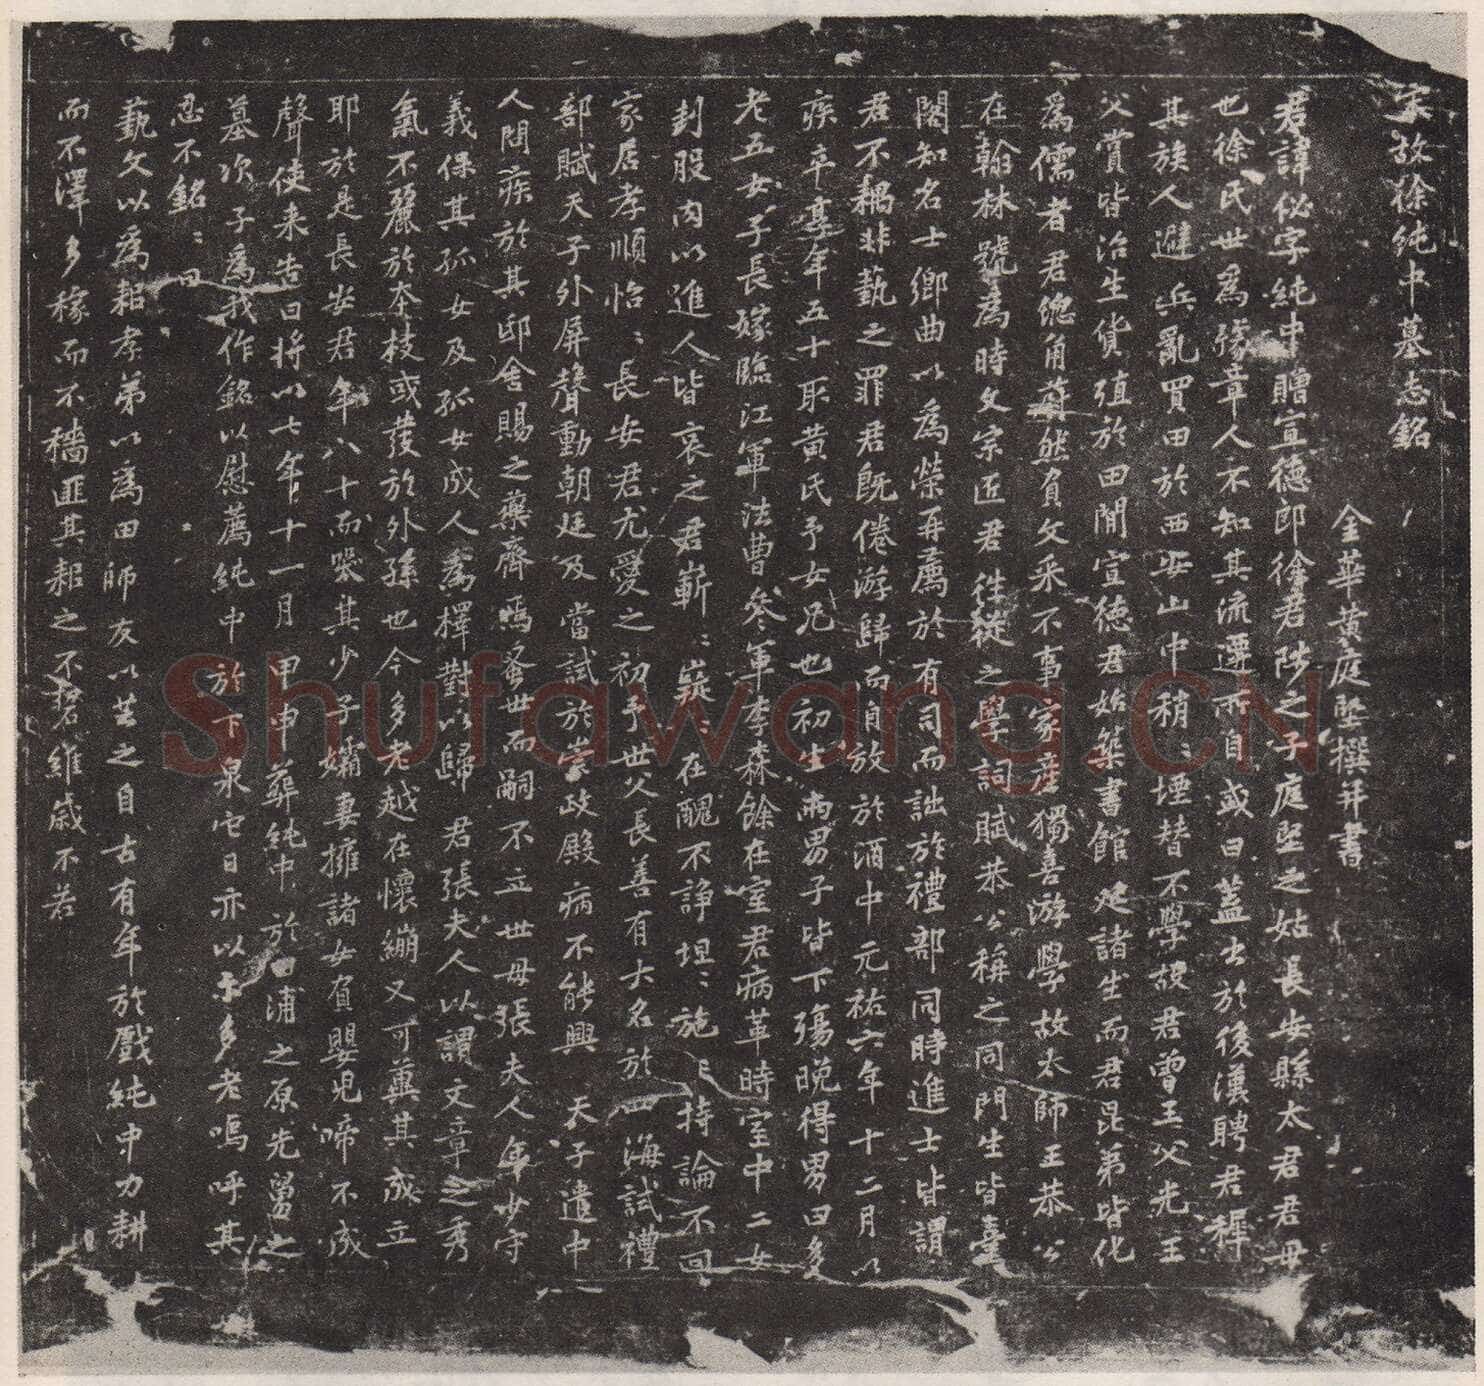 宋故徐純中墓志銘
金華黃庭堅撰并書
君諱佖字純中贈宣德郎徐君陟之子庭堅之姑長安縣太君君母
也徐氏世爲豫章人不知其流遷所自或曰蓋出於後漢聘君穉
其族人避兵亂買田於西安山中稍〻堙替不學故君曾王父先王
父賞皆治生貨殖於田閒宣德君始築書館延諸生而君昆弟皆化
爲儒者君緫角蔚然負文采不事家產獨喜游學故太師王恭公
在翰林號為時文宗匠君往從之學詞賦恭公稱之同門生皆臺
閣知名士鄉曲以為榮再薦於有司而詘於禮部同時進士皆謂
君不耦非藝之罪君既倦游歸而自放於酒中元祐六年十二月以
疾卒享年五十取黃氏予女兄也初生兩男子皆下殤晚得男曰多
老五女子長嫁臨江軍法曹參軍李森餘在室君病革時室中二女
刲股肉以進人皆哀之君嶄〻嶷〻在醜不諍坦〻施〻持論不回
家居孝順怡〻長安君尤愛之初予世父長善有大名於四海試禮
部賦天子外屏聲動朝廷及當試於崇政殿病不能興 天子遣中
人問疾於其邸舍賜之藥齊焉蚤世而嗣不立世母張夫人年少守
義保其孤女及孤女成人為擇對以歸 君張夫人以謂文章之秀
氣不麗於本枝或發於外孫也今多老越在懷繃又可冀其成立
耶於是長安君年八十而哭其少子孀妻擁諸女負嬰兒啼不成
聲使来告曰将以七年十一月 甲申葬純中於 浦之原先舅之
墓次子為我作銘以慰薦純中 於下泉它日亦以示多老嗚呼其
忍不銘〻曰
藝文以為耜孝弟以為田師友以芸之自古有年於戲純中力耕
而不澤多稼而不穡匪其耜之不良維歲不若
Shufawang.CN